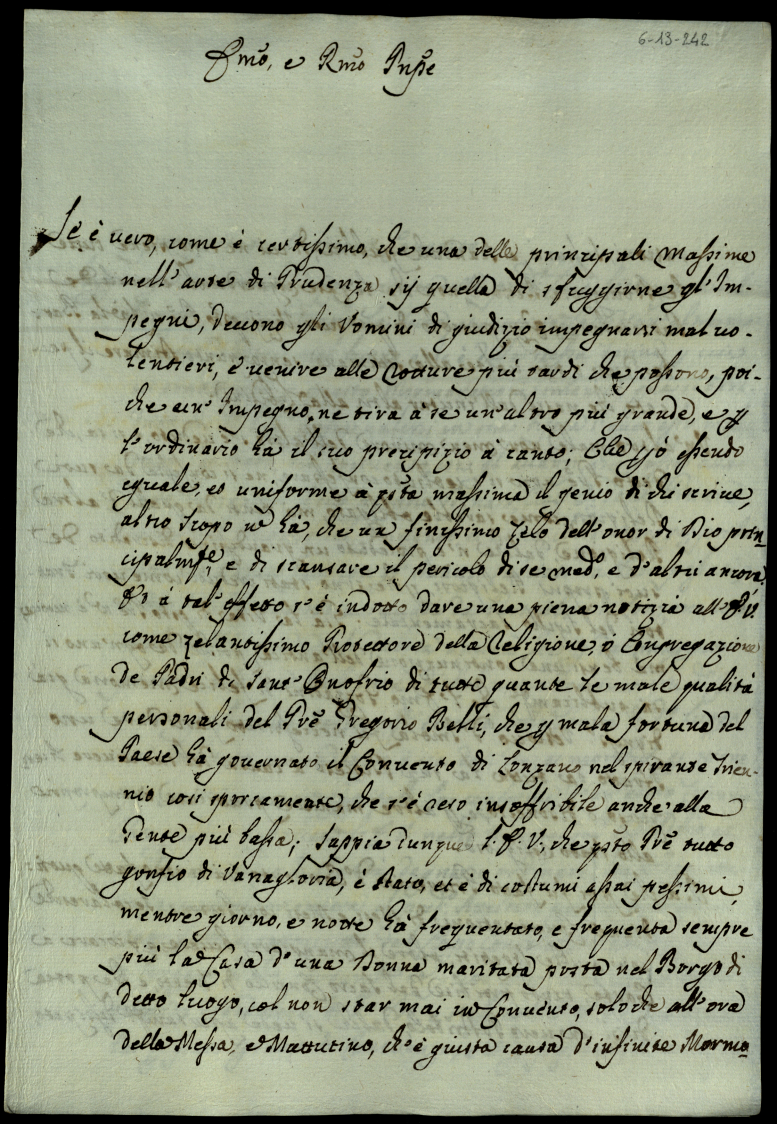 6-13-242
Emo, e Rmo Pnpe
Se è vero, come è certissimo, che una delle principali Massime
nell'arte di Prudenza sij quella di sfuggirne gl'Im-
pegni, devono gli Uomini di giudizio impegnarsi mal vo-
lentieri, e venire alle rotture più tardi che possono, poi-
che un'Impegno ne tira à se un'altro più grande, e p
l'ordinario hà il suo precipizio à canto; Che p ciò essendo
eguale, et uniforme à qsta massima il genio di chi scrive,
altro scopo nō hà, che un finissimo zelo dell'onor di Dio prin-
cipalmte, e di scansare il pericolo di se medo, e d'altri ancora,
à tal'effetto s'è indotto dare una piena notizia all'E.V.
come zelantissimo Protettore della Religione, ò Congregazione
de Padri di Sant'Onofrio di tutte quante le male qualità
personali del Pre Gregorio Belli, che p mala fortuna del
Paese hà governato il Convento di Lonzano nel spirante Trien-
nio così sporcamente, che s'è reso insoffribile anche alla
Gente più bassa; Sappia dunque l'E.V., che qsto Pre tutto
gonfio di Vanagloria, è stato, et è di costumi assai pessimi,
mentre giorno, e notte hà frequentato, e frequenta sempre
più la Casa d'una Donna maritata posta nel Borgo di
detto luogo, col non star mai in Convento, solo che all'ora
della Messa, e Mattutino, ch'è giusta causa d'infinite Mormo-